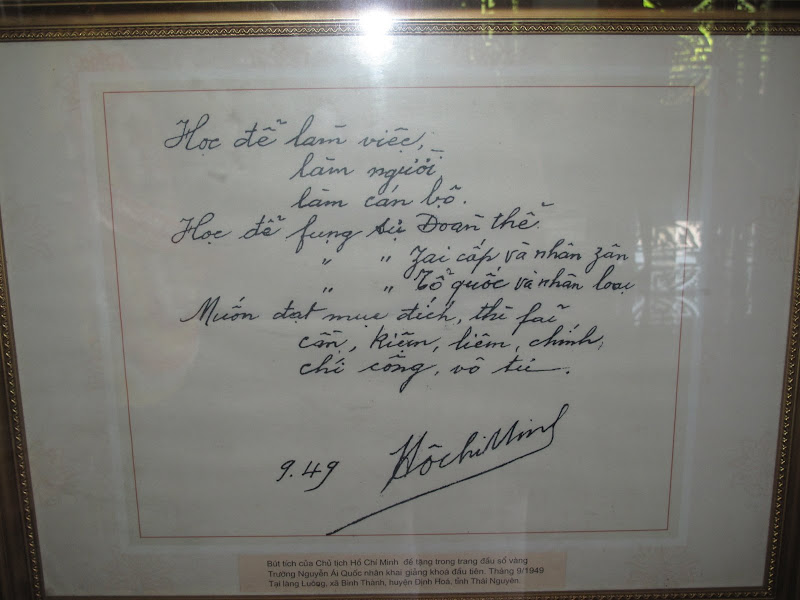 Học để làm việc,
làm người,
làm cán bộ.
Học để fụng sự Đoàn thể.
" " Zai cấp và nhân zân
" " Tổ quốc và nhân loại
Muốn đạt mục đích, thì fải
cần, kiệm, liêm, chính,
chí công, vô tư.
9.49 HồchiMinh
Bút tích của Chủ tịch Hồ Chí Minh đề tặng trong trang đầu sổ vàng
Trường Nguyễn Ái Quốc nhân khai giảng khoá đầu tiên. Tháng 9/1949
Tại làng Luông, xã Bình Thành, huyện Định Hoá, tỉnh Thái Nguyên.